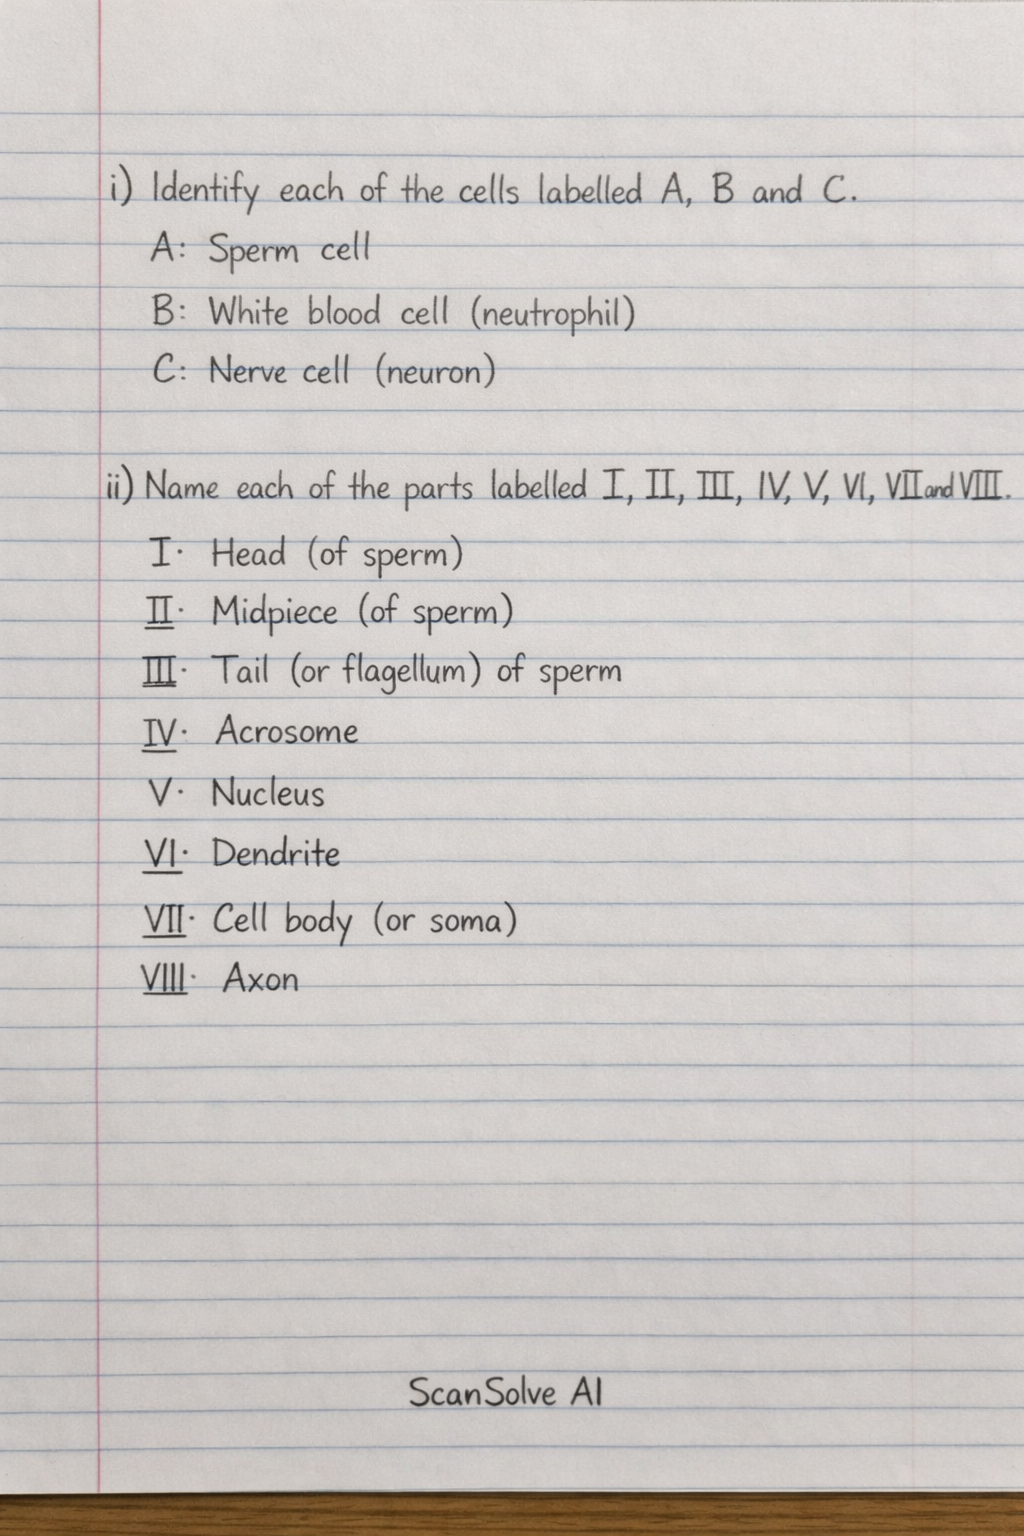 i) Identify each of the cells labelled A, B and C.
A: Sperm cell
B: White blood cell (neutrophil)
C: Nerve cell (neuron)
ii) Name each of the parts labelled I, II, III, IV, V, VI, VII and VIII.
I. Head (of sperm)
II. Midpiece (of sperm)
III. Tail (or flagellum) of sperm
IV. Acrosome
V. Nucleus
VI. Dendrite
VII. Cell body (or soma)
VIII. Axon
ScanSolve AI